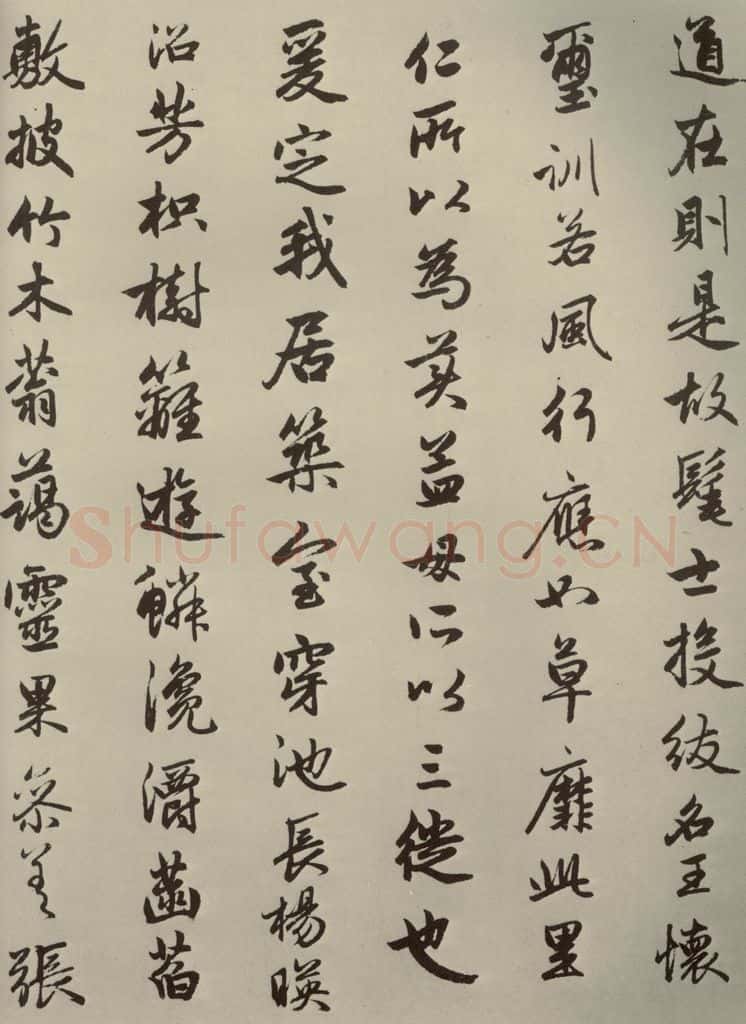 道在則是故髦士投紱名王懷
璽訓若風行應如草靡此里
仁所以為美孟母所以三徙也
爰定我居築室穿池長楊暎
沼芳枳樹籬遊鱗瀺灂菡萏
敷披竹木蓊藹靈果參差張
Shufawang.CN